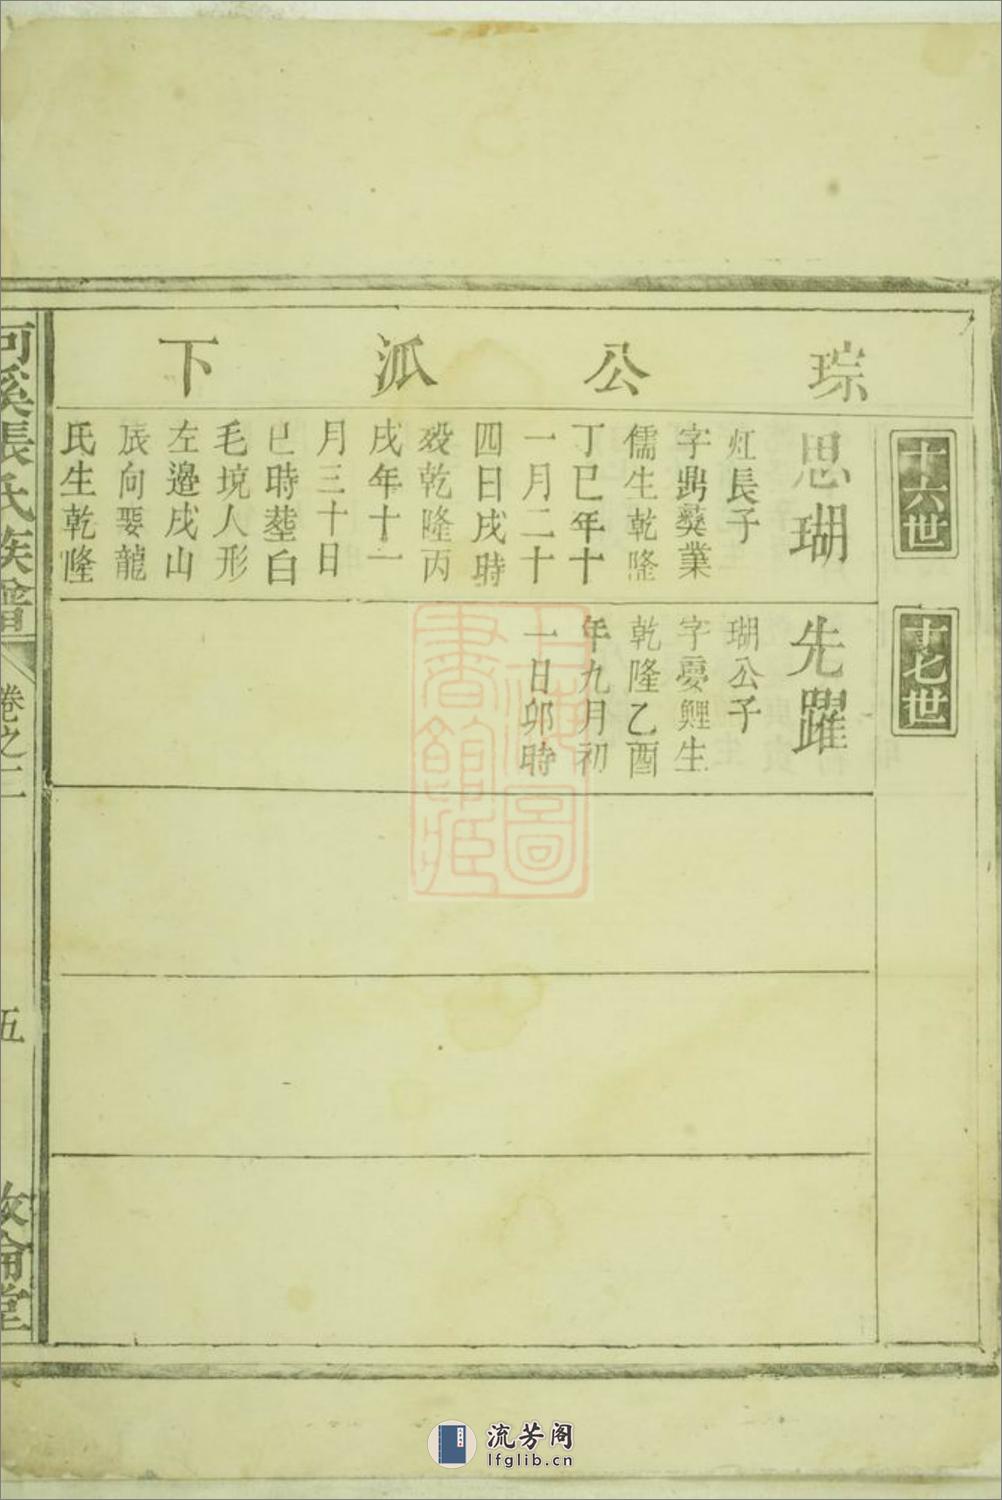 琮公派下
十六世
思瑚
灴長子
字鼎彛業
儒生乾隆
丁巳年十
一月二十
四日戌時
歿乾隆丙
戌年十一
月三十日
巳時塟白
毛境人形
左邉戌山
辰向娶龍
氏生乾隆
十七世
先躍
瑚公子
字夢鯉生
乾隆乙酉
年九月初
一日卯時
河溪張氏族譜
卷之二
五
敦倫堂
上海圖
書館藏
流芳阁
lfglib.cn